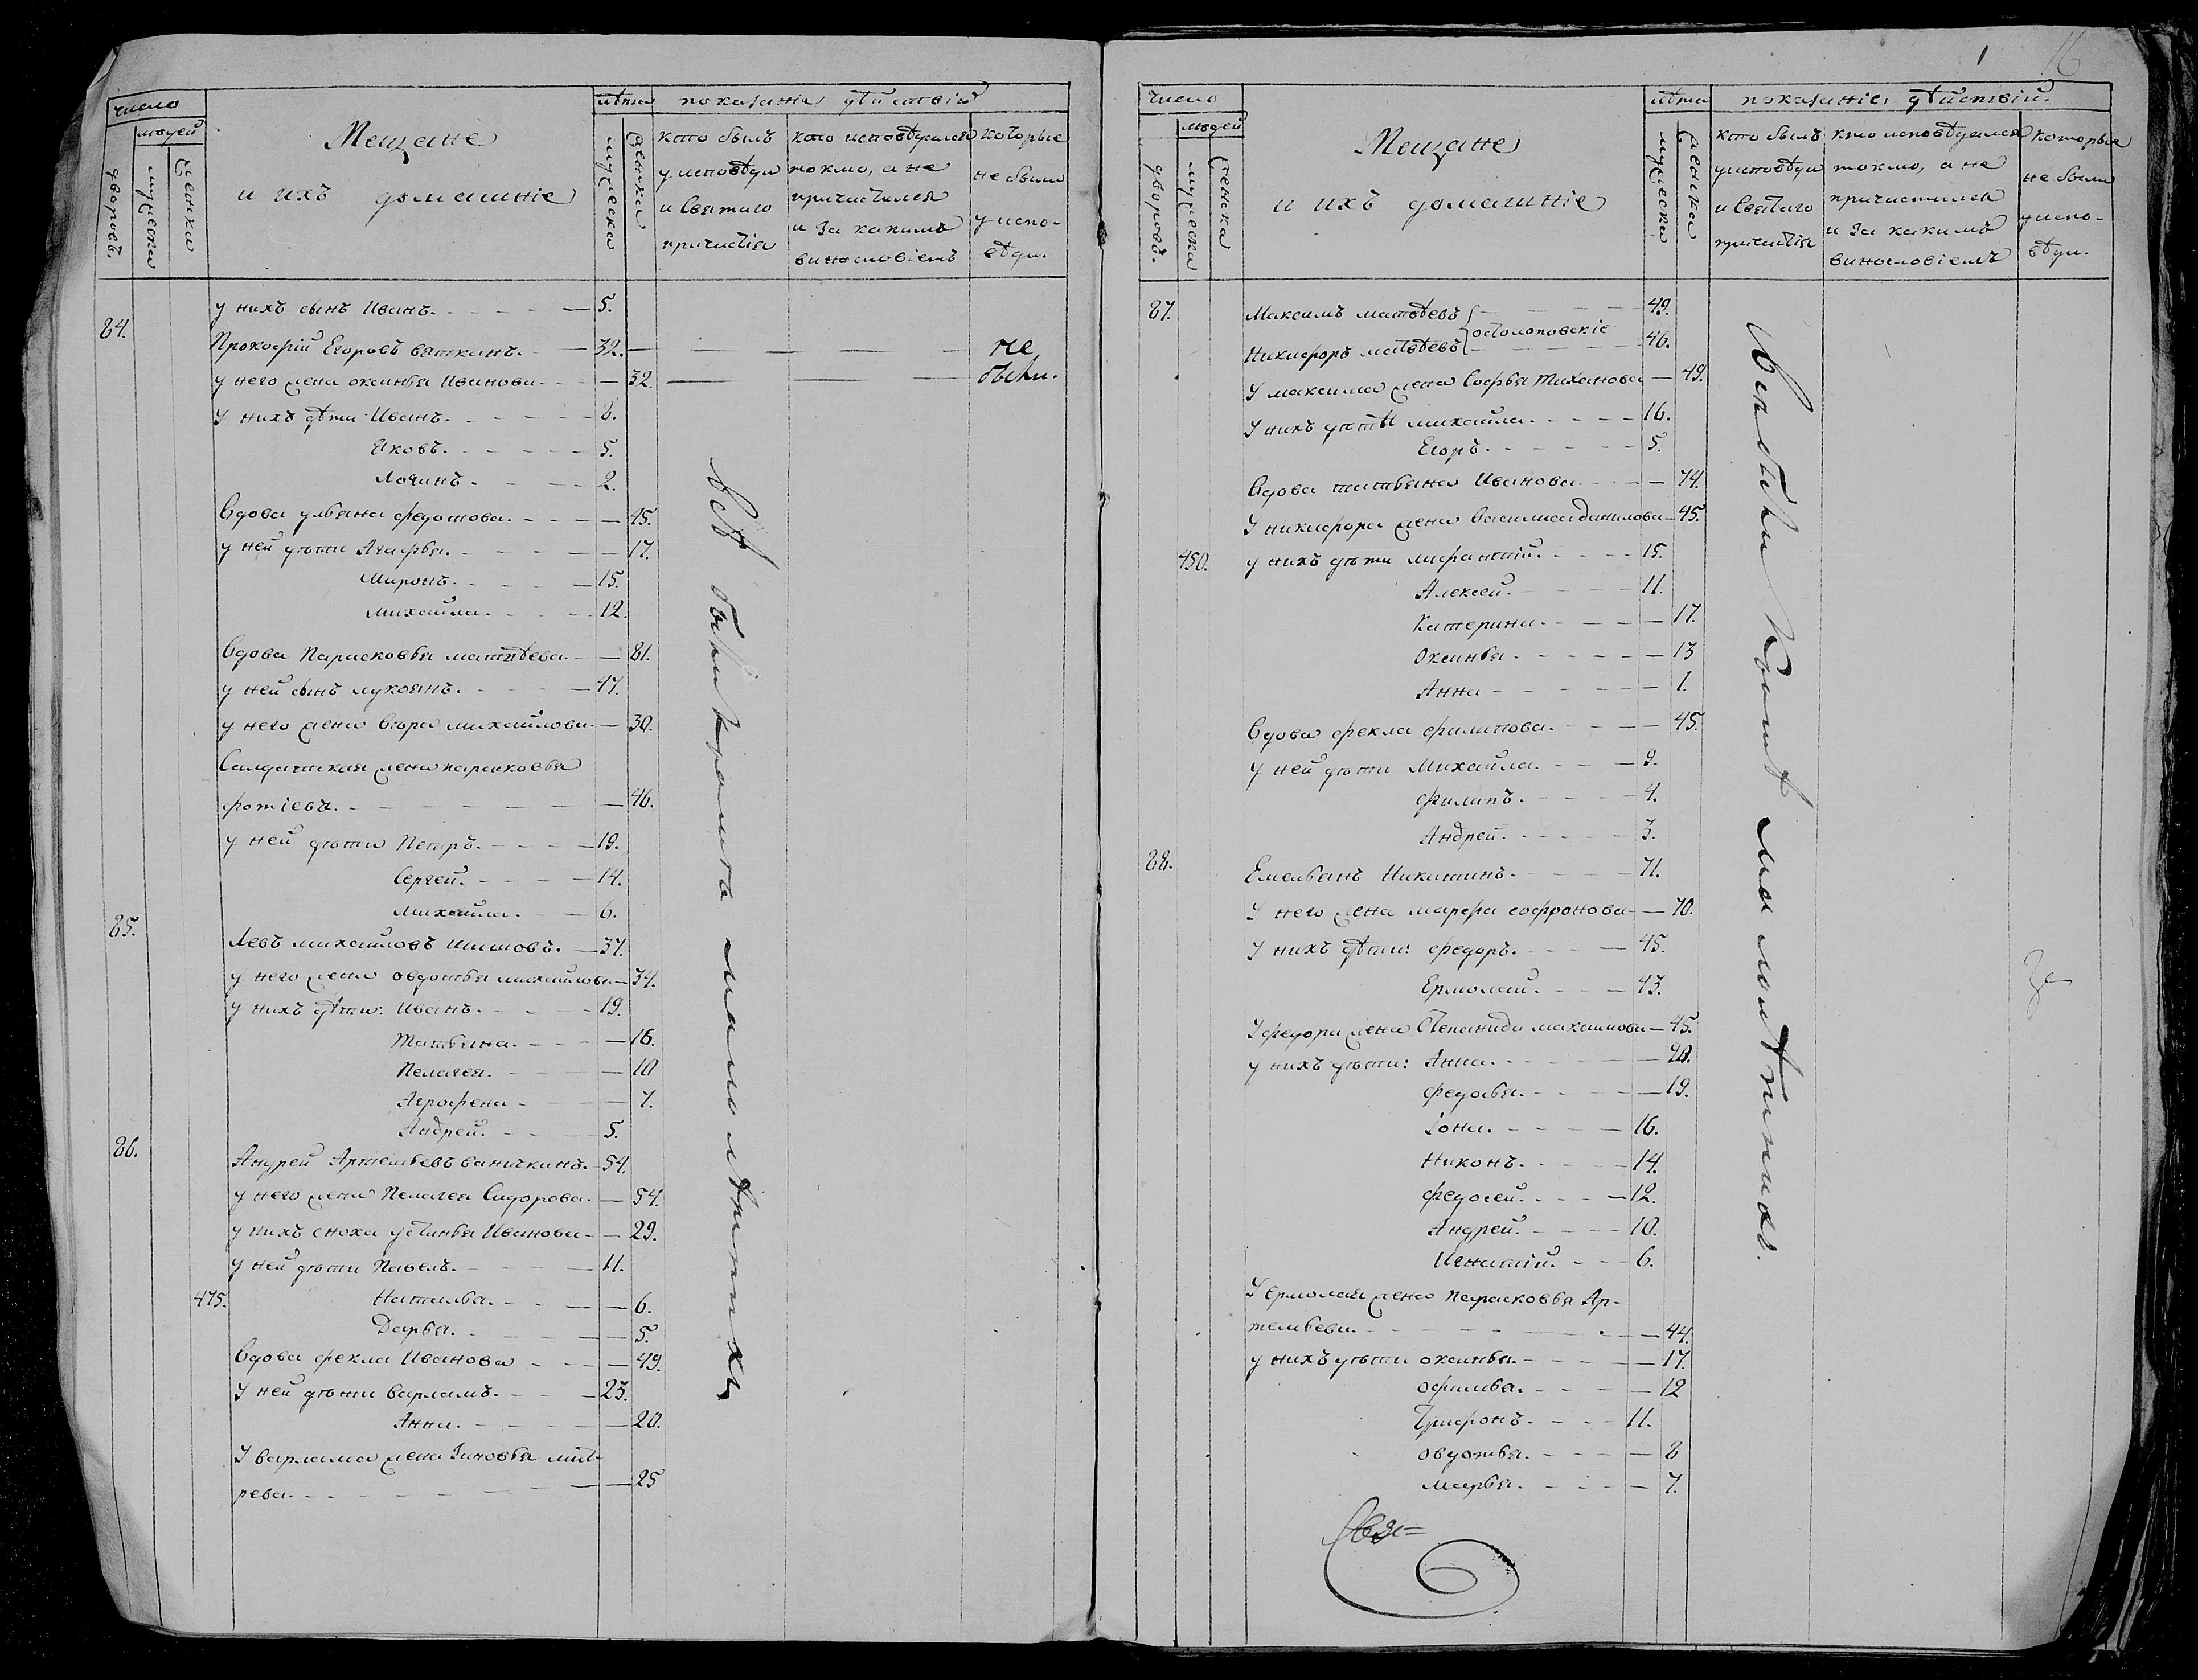 число
людей
дворовъ.
мужеска
женска
Мещане
и ихъ домашніе
лѣта
мужеска
женска
показаніе дѣйствій
кто былъ
у исповѣди
и Святаго
причастія
кто исповѣдался
токмо, а не
причастился
и за какимъ
винословіемъ
которые
не были
у испо-
вѣди.
у нихъ сынъ Иванъ. 5.
84. Прокофій Егоровъ вяткинъ. 32. не
у него жена оксинья Иванова 32. были.
У нихъ дѣти Иванъ. 8.
Яковъ. 5.
Логинъ. 2.
Вдова ульяна федотова. 45.
у ней дѣти Агафья. 17.
Миронъ. 15.
михайла. 12.
Вдова Парасковья матвѣева. 81.
у ней сынъ лукоянъ. 47.
у него жена вѣра михайлова. 30.
Салдатская жена парасковья
фотіева. 46.
у ней дѣти Петръ. 19.
Сергей. 14.
михайла. 6.
85. Левъ михайловъ шишовъ. 37.
у него жена овдотья михайлова 34.
у нихъ дѣти: Иванъ. 19.
Татьяна. 16.
Пелагея. 10
Аграфена 7.
Андрей. 5.
86. Андрей Артемьевъ ваничкинъ. 54.
у него жена Пелагея Сидорова. 54.
у нихъ сноха устинья Иванова 29.
у ней дѣти Павелъ. 11.
475. Наталья. 6.
Дарья. 5.
Вдова фекла Иванова 49.
У ней дѣти варламъ. 23.
Анна. 20.
У варлама жена Зиновья мит-
рева. 25
всѣ были кромѣ малолѣтнихъ
1 16
число
людей
дворовъ.
мужеска
женска
Мещане
и ихъ домашніе
лѣта
мужеска
женска
показаніе дѣйствій.
кто былъ
у исповѣди
и Святаго
причастія
кто исповѣдался
токмо, а не
причастился
и За какимъ
винословіемъ
которые
не были
у испо-
вѣди.
87. Максимъ матвѣевъ 49.
остолоповскіе
Никифоръ матвѣевъ 46.
У максима жена Софья Тиханова 49.
У нихъ дѣти михайла. 16.
Егоръ. 5.
Вдова татьяна Иванова 74.
У никифора жена василиса данилова 45.
450. у нихъ дѣти лифантій. 15.
Алексей. 11.
Катерина. 17.
Оксинья. 13
Анна 1.
Вдова фекла филипова. 45.
у ней дѣти Михайла. 9.
филипъ. 4.
Андрей. 3.
88. Емельянъ Никитинъ. 71.
У него жена марфа софронова 70.
У нихъ дѣти: федоръ. 45.
Ермолай. 43.
У федора жена Степанида максимова 45.
у нихъ дѣти: Анна. 20.
федосья. 19.
Іона. 16.
Никонъ. 14.
федосей. 12.
Андрей. 10.
Игнатій. 6.
У ермолая жена парасковья Ар-
темьева. 44.
у нихъ дѣти оксинья. 17.
офимья. 12
Трифонъ. 11.
овдотья. 8
марья. 7.
Всѣ были кромѣ малолѣтнихъ.